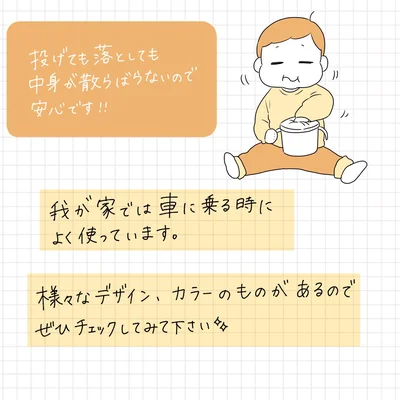 投げても落としても
中身が散らばらないので
安心です!!
我が家では車に乗る時に
よく使っています。
様々なデザイン、カラーのものがあるので
ぜひチェックしてみて下さい✨